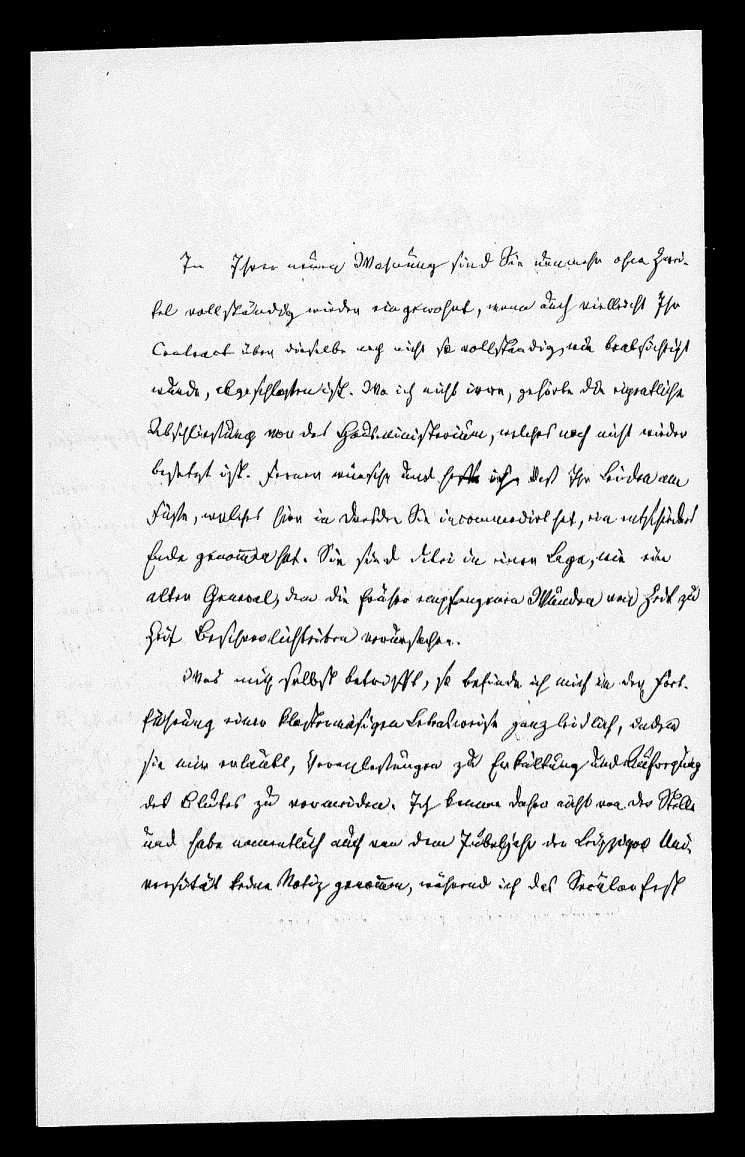 In Ihrer neuen Wohnung sind Sie nunmehr ohne Zwei-
fel vollständig wieder eingewohnt, wenn auch vielleicht Ihr
Contract über dieselbe noch nicht so vollständig, wie beabsichtigt
wurde, abgeschlossen ist. Wo ich nicht irre, gehörte die eigentliche
Abschließung vor das Hausministerium, welches noch nicht wieder
besetzt ist. Ferner wünsche und hoffe ich, daß Ihr Leiden am
Fuße, welches hier in Dresden Sie incommodirt hat, ein
Ende genommen hat. Sie sind dabei in einer Lage, wie ein
alter General, dem die früher empfangenen Wunden von Zeit zu
Zeit Beschwerlichkeiten verursachen.
Was mich selbst betrifft, so befinde ich mich in der Fort-
führung einer klostermäßigen Lebensweise ganz leidlich, indem
sie mir erlaubt, Veranlassungen zu Erkältung und Aufregung
des Blutes zu vermeiden. Ich komme daher nicht von der Stelle
und habe namentlich auch von dem Jubeljahr der Leipziger Uni-
versität keine Notiz genommen, während ich das Secularfest